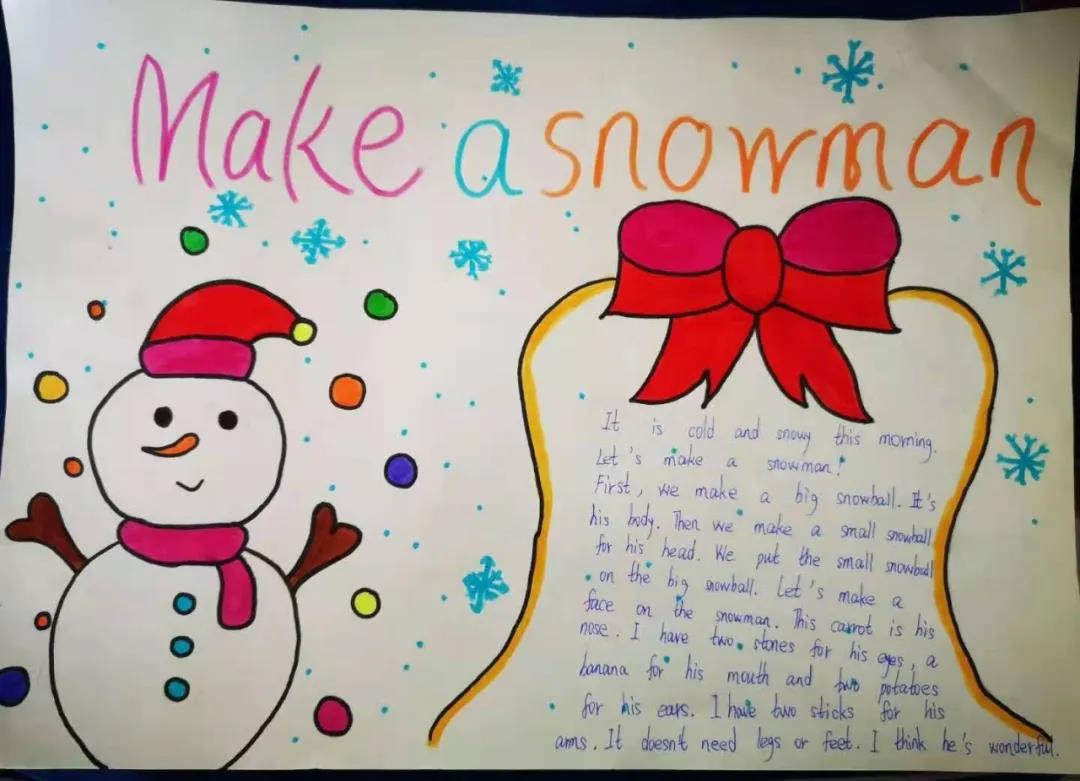 Make a snowman
It is cold and snowy this morning.
Let's make a snowman!
First, we make a big snowball. It's
his body. Then we make a small snowball
for his head. We put the small snowball
on the big snowball. Let's make a
face on the snowman. This carrot is his
nose. I have two stones for his eyes, a
banana for his mouth and two potatoes
for his ears. I have two sticks for his
arms. It doesn't need legs or feet. I think he's wonderful.